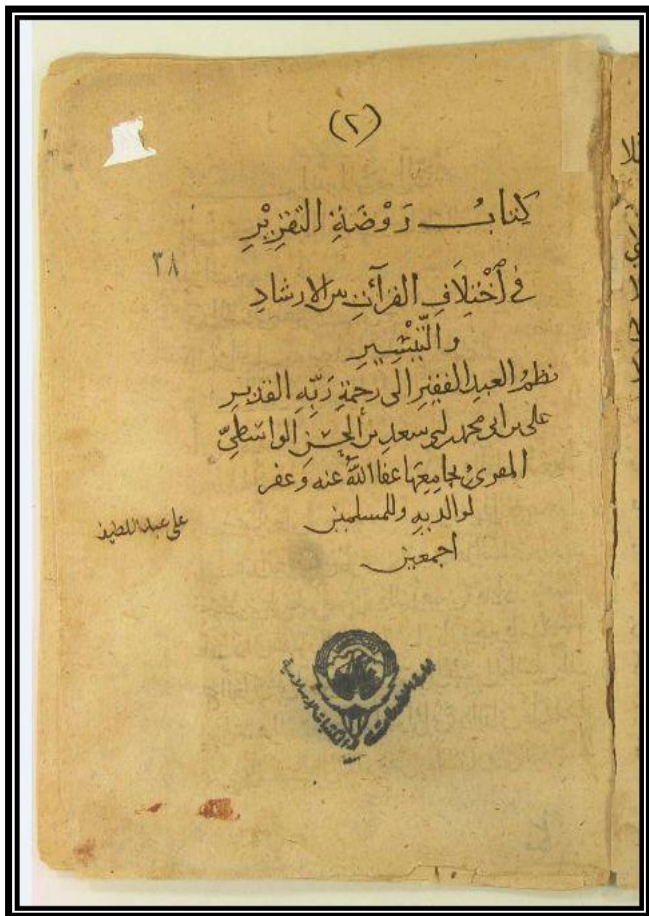 (٢)
كتابُ رَوْضَةِ التقْرِيْرِ
٣٨
في اَخْتِلَافِ القرآت بين الارشادِ
والتَّيْسِيرِ
نظمُ العبدِ الفقيرِ الى رحمةِ رَبِّهِ القديرِ
على بن ابى محمد بن ابى سعد بن الحسن الواسَطِىِّ
المقرئ بجامِعِهَا عفا اللهُ عنه وغفر
لوالديهِ وللمسلمين
اجمعين
على عبد اللطيف